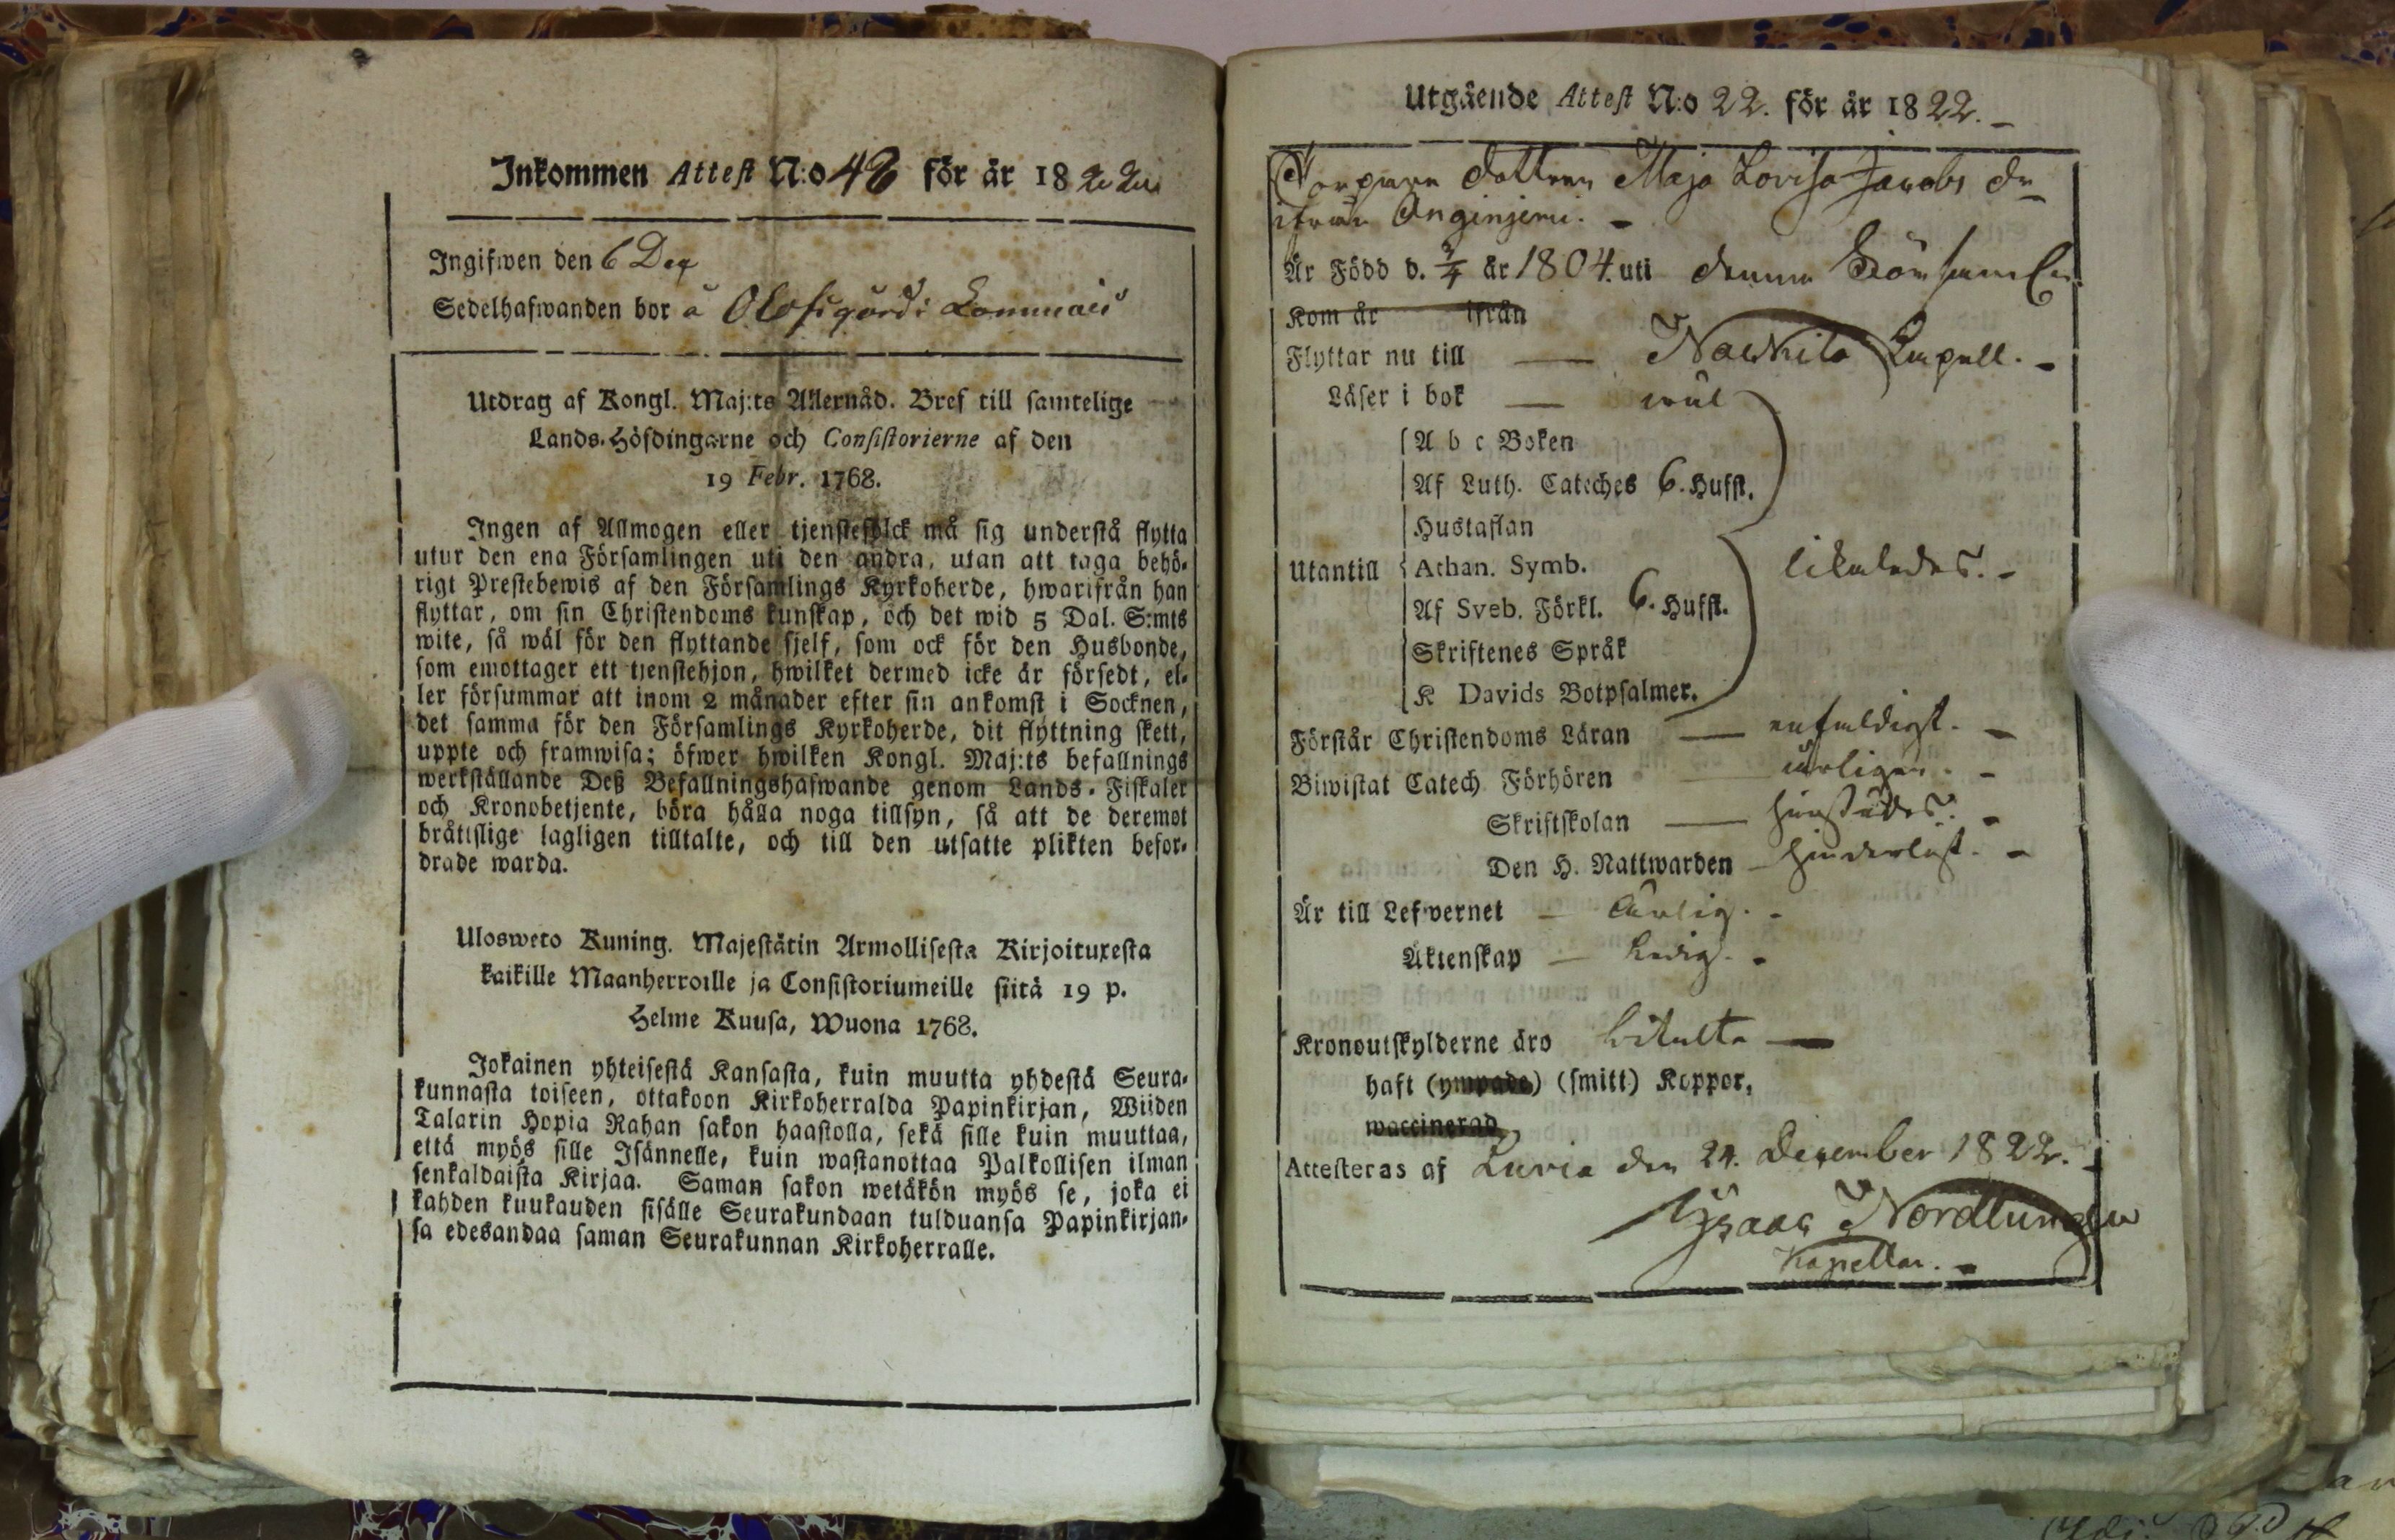 Inkommen Attest N:o 48 för år 1822
Ingifwen den 6 Dec
Sedelhafwanden bor å Olofsgård i
Utdrag af Kongl. Maj:ts Allernåd. Bref till samtelige
Lands-Höfdingarne och Consistorierne af den
19 Febr. 1768.
Ingen af Allmogen eller tjenstefolck må sig understå flytta
utur den ena Församlingen uti den andra, utan att taga behö-
rigt Prestebewis af den Församlings Kyrkoherde, hwarifrån han
flyttar, om sin Christendoms kunskap, och det wid 5 Dal. S:mts
wite, så wäl för den flyttande sjelf, som ock för den Husbonde,
som emottager ett tjenstehjon, hwilket dermed icke är försedt, el-
ler försummar att inom 2 månader efter sin ankomst i Socknen,
det samma för den Församlings Kyrkoherde, dit flyttning skett,
uppte och framwisa; öfwer hwilken Kongl. Maj:ts befallnings
werkställande Deß Befallningshafwande genom Lands-Fiskaler
och Kronobetjente, böra hålla noga tillsyn, så att de deremot
bråttslige lagligen tilltalte, och till den utsatte plikten befor-
drade warda.
Ulosweto Kuning. Majestätin Armollisesta Kirjoituxesta
kaikille Maanherroille ja Consistoriumeille siitä 19 p.
Helme Kuusa, Wuona 1768.
Jokainen yhteisestä Kansasta, kuin muutta yhdestä Seura-
kunnasta toiseen, ottakoon Kirkoherralda Papinkirjan, Wiiden
Talarin Hopia Rahan sakon haastolla, sekä sille kuin muuttaa,
että myös sille Isännelle, kuin wastanottaa Palkollisen ilman
senkaldaista Kirjaa. Saman sakon wetäkön myös se, joka ei
kahden kuukauden sisälle Seurakundaan tulduansa Papinkirjan-
sa edesandaa saman Seurakunnan Kirkoherralle.
Utgående Attest N:o 22. för år 1822.
Torpare dottren Maja Lovisa Jacobs dr
ifrån Anginjemi.
Är Född d. 3/4 år 1804. uti denna Församlin
Kom år ifrån
Flyttar nu till — Nakkila Capell.
Läser i bok — wäl
A b c Boken
Af Luth. Cateches 6. Hufst.
Hustaflan
Utantill Athan. Symb. likaledes.
Af Sveb. Förkl. 6. Hufst.
Skriftenes Språk
K Davids Botpsalmer.
Förstår Christendoms Läran — enfaldigt.
Biwistat Catech Förhören — årligen.
Skriftskolan — härstädes.
Den H. Nattwarden — hinderlöst.
Är till Lefwernet — Ärlig.
Äktenskap — Ledig.
Kronoutskylderne äro betalte —
haft (ympade) (smitt) Koppor,
waccinerad
Attesteras af Luvia den 24. December 1822.
Isaac Nordlund
Kapellan.